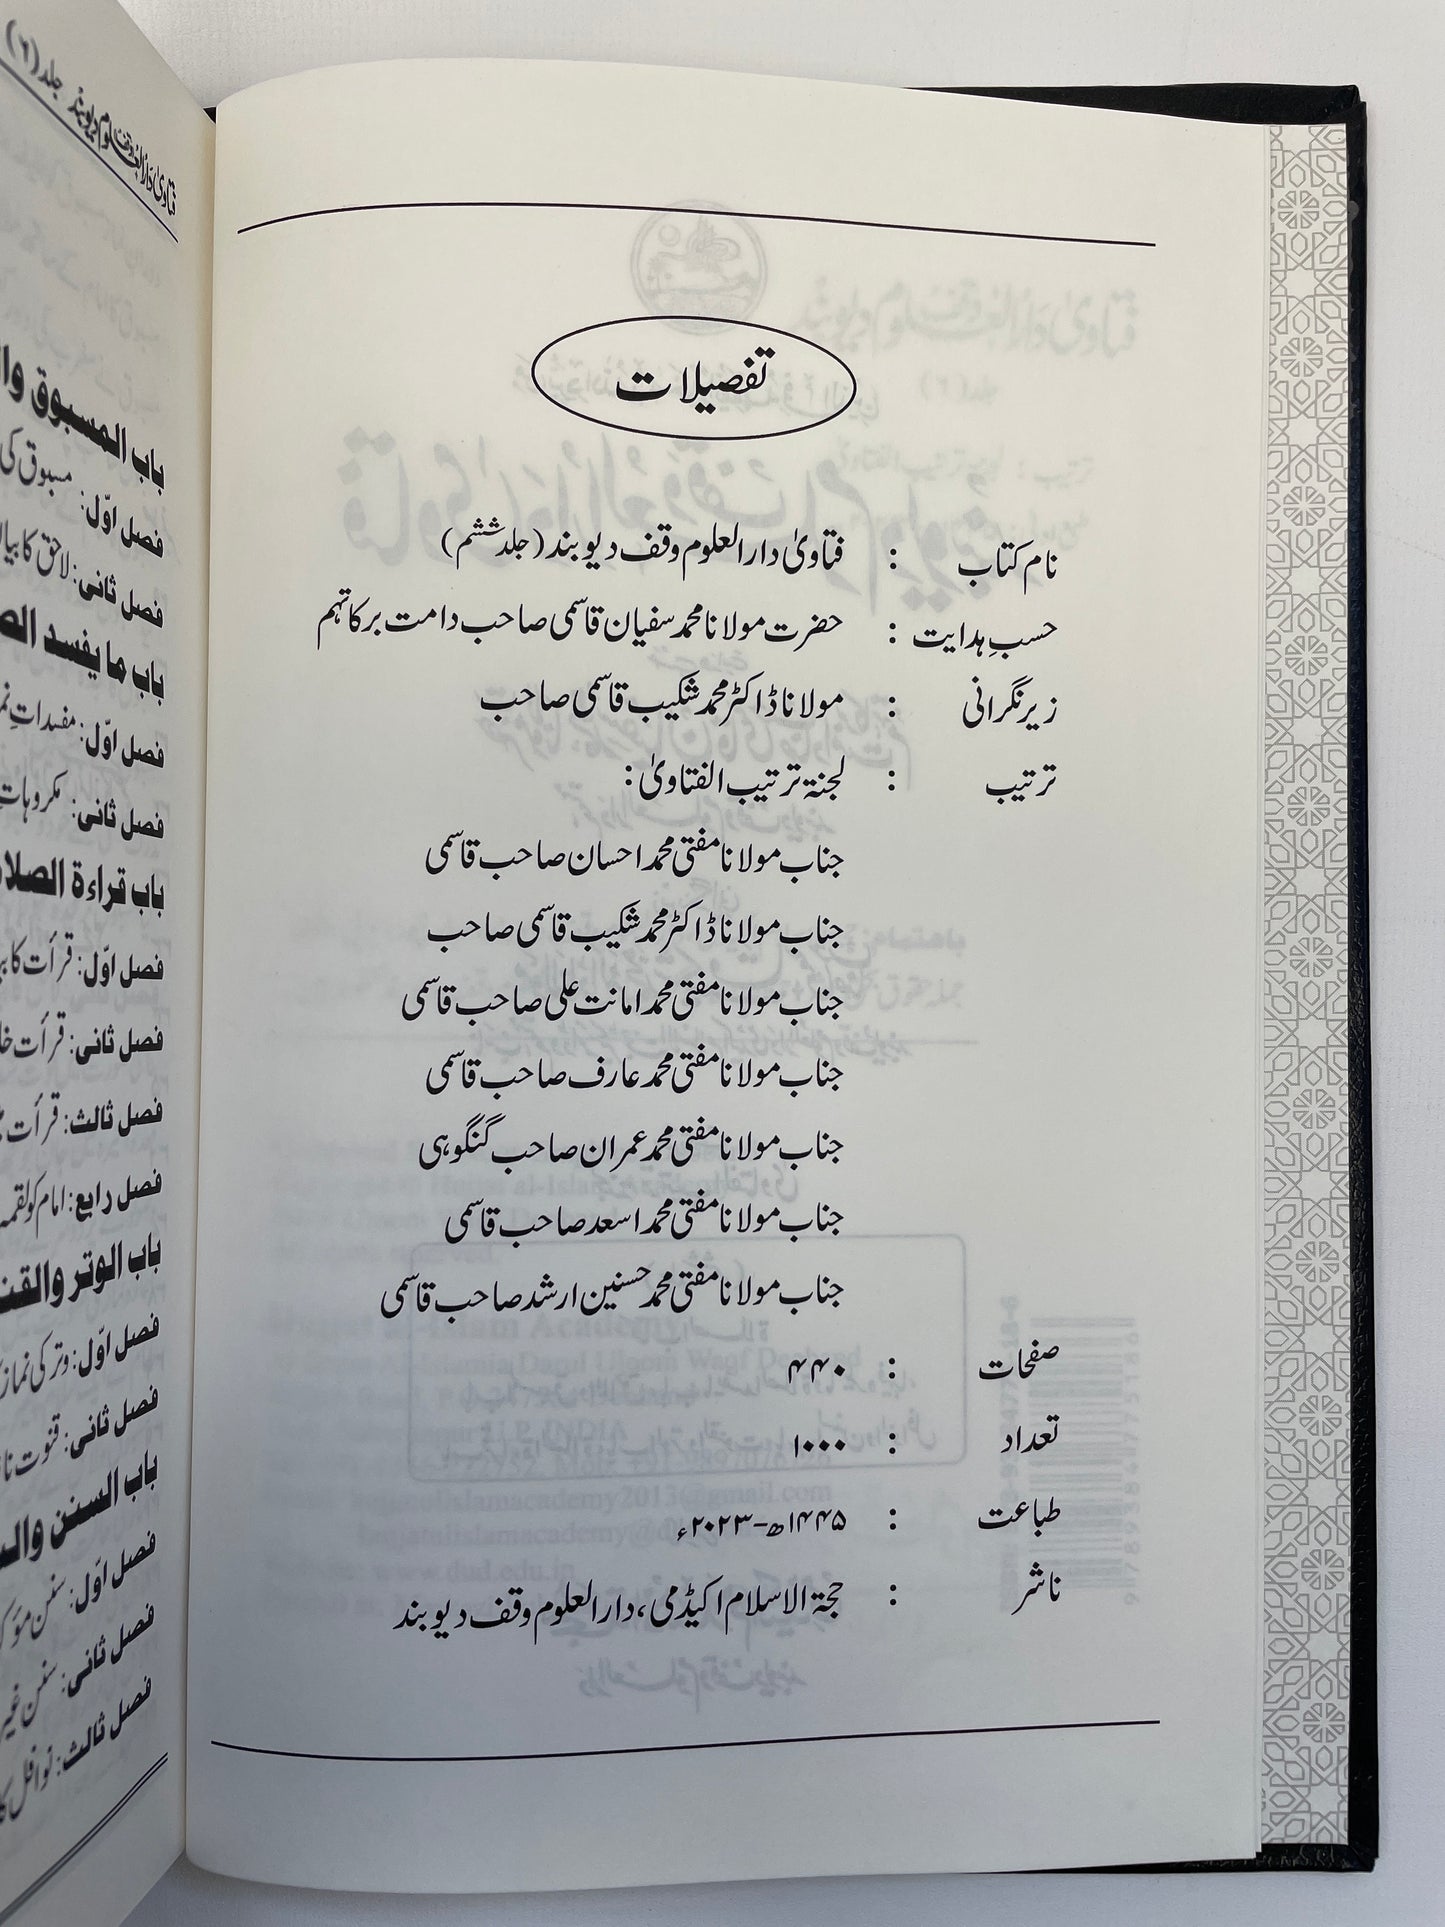 تفصیلات
نام کتاب : فتاویٰ دارالعلوم وقف دیوبند (جلد ششم)
حسبِ ہدایت : حضرت مولانا محمد سفیان قاسمی صاحب دامت برکاتہم
زیر نگرانی : مولانا ڈاکٹر محمد شکیب قاسمی صاحب
ترتیب : لجنۃ ترتیب الفتاویٰ:
جناب مولانا مفتی محمد احسان صاحب قاسمی
جناب مولانا ڈاکٹر محمد شکیب قاسمی صاحب
جناب مولانا مفتی محمد امانت علی صاحب قاسمی
جناب مولانا مفتی محمد عارف صاحب قاسمی
جناب مولانا مفتی محمد عمران صاحب گنگوہی
جناب مولانا مفتی محمد اسعد صاحب قاسمی
جناب مولانا مفتی محمد حسنین ارشد صاحب قاسمی
صفحات : ۴۴۰
تعداد : ۱۰۰۰
طباعت : ۱۴۴۵ھ-۲۰۲۳ء
ناشر : حجۃ الاسلام اکیڈمی، دارالعلوم وقف دیوبند
فتاویٰ دارالعلوم وقف دیوبند جلد (۶)
باب المسبوق
فصل اوّل: مسبوق کی
فصل ثانی: لاحق کا
باب ما یفسد
فصل اوّل: مفسداتِ
فصل ثانی: مکروہاتِ
باب قراءة
فصل اوّل: قرأت کا
فصل ثانی: قرأت
فصل ثالث: قرأت
فصل رابع: امام کو لقمہ
باب الوتر
فصل اوّل: وتر کی نماز
فصل ثانی: قنوت
باب السنن
فصل اوّل: سنن
فصل ثانی: سنن غیر
فصل ثالث: نوافل